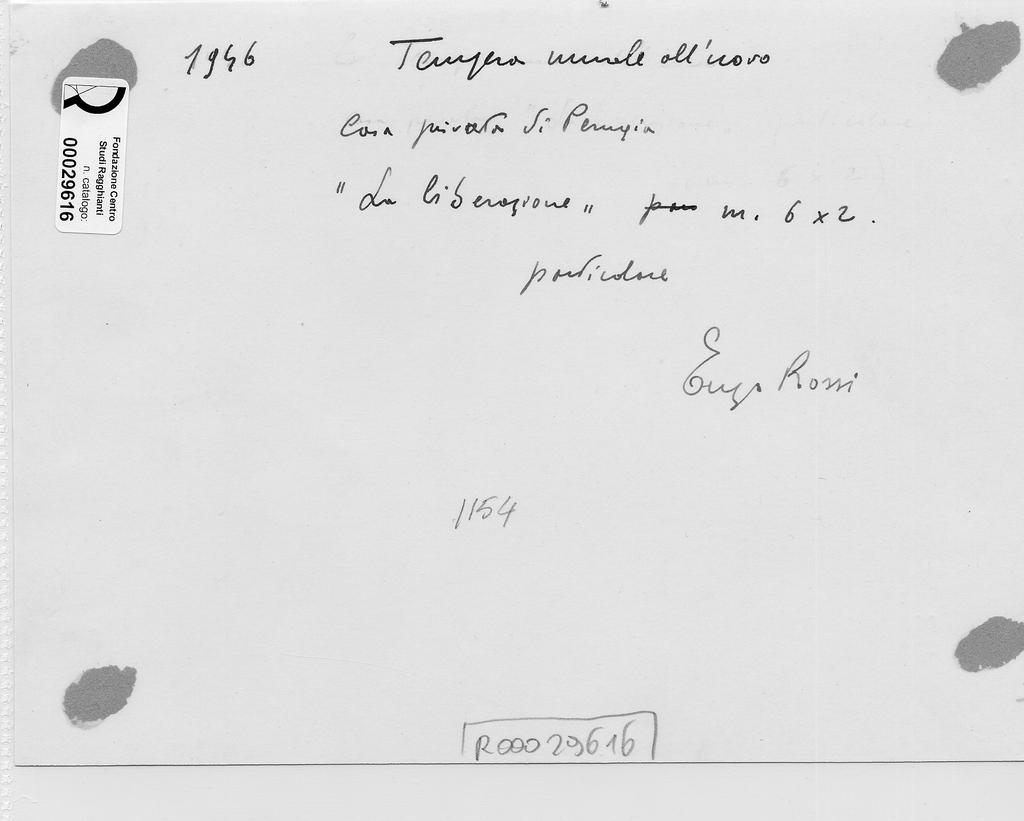 1946 Tempera murale all'uovo
Casa privata di Perugia
"La liberazione" m. 6 x 2.
particolare
Enzo Rossi
1154
R00029616
Fondazione Centro
Studi Ragghianti
n. catalogo:
00029616